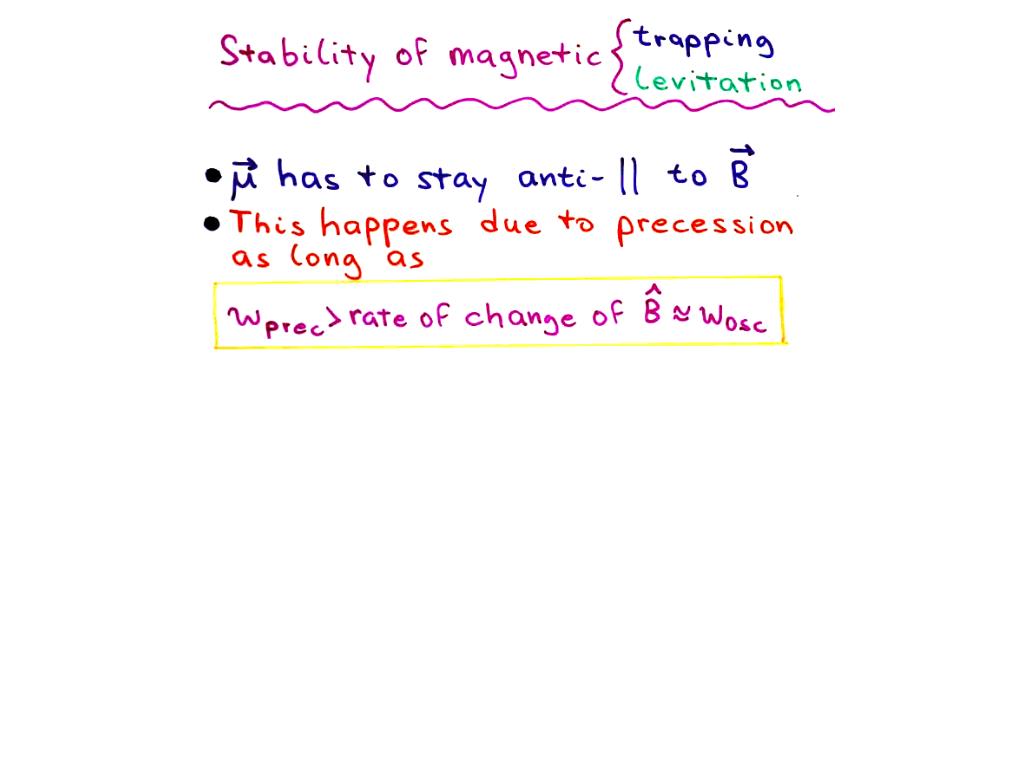 Stability of magnetic { trapping
levitation
• μ⃗ has to stay anti-|| to B⃗
• This happens due to precession
as long as
ω_prec > rate of change of B̂ ≈ ω_osc